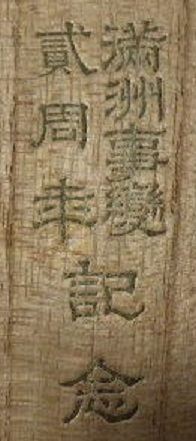 滿洲事變
貳周年
記念